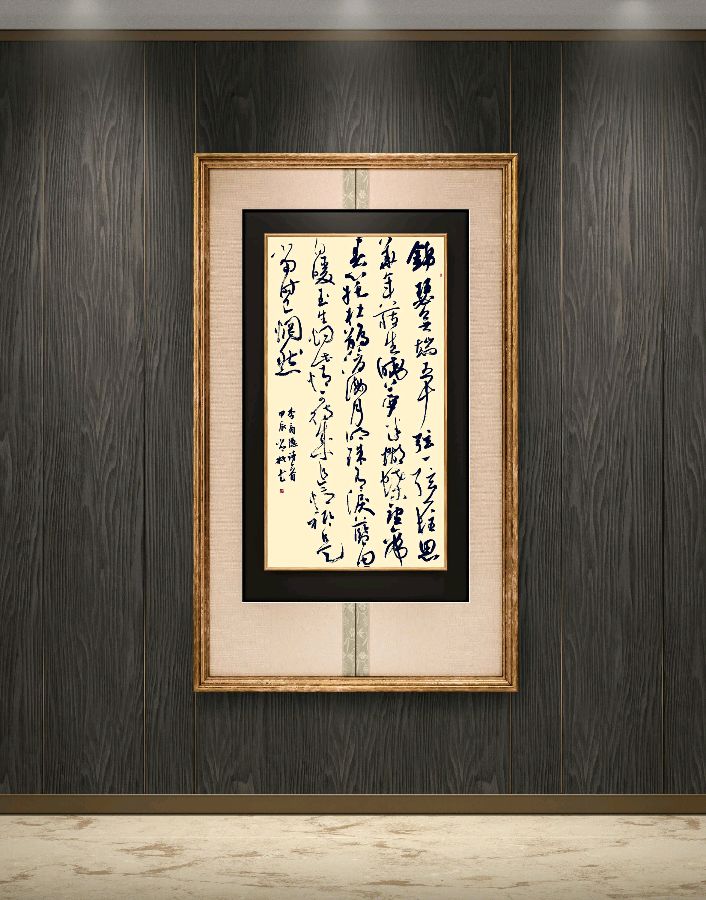 錦瑟無端五十弦一弦一柱思
華年莊生曉夢迷蝴蝶望帝
春心托杜鵑滄海月明珠有淚藍田
日暖玉生煙此情可待成追憶只是
當時已惘然
李商隱詩一首
甲辰